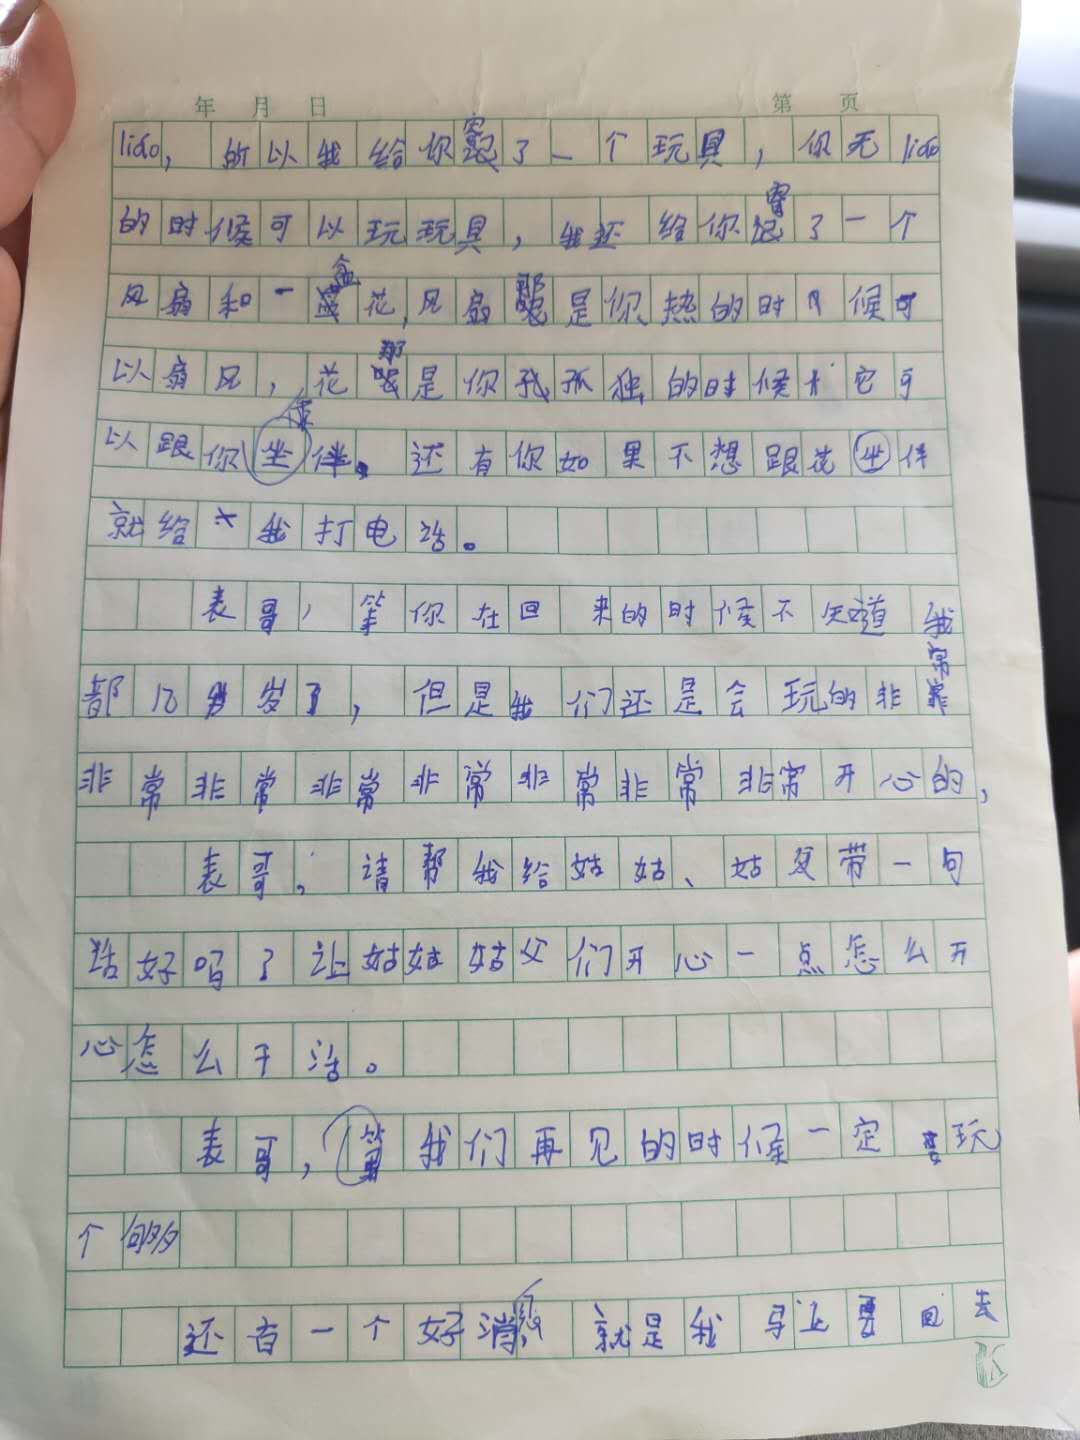 年 月 日 第 页
liáo，所以我给你寄了一个玩具，你无liáo
的时候可以玩玩具，我还给你寄了一个
风扇和一盆花，风扇那是你热的时候可
以扇风，花那是你孤独的时候它可
以跟你坐伴。还有你如果不想跟花坐伴
就给我打电话。
表哥，等你在回来的时候不知道我
都几岁了，但是我们还是会玩的非常
非常非常非常非常非常非常非常开心的，
表哥，请帮我给姑姑、姑父带一句
话好吗？让姑姑姑父们开心一点怎么开
心怎么干活。
表哥，等我们再见的时候一定要玩
个够
还有一个好消息，就是我马上要回去